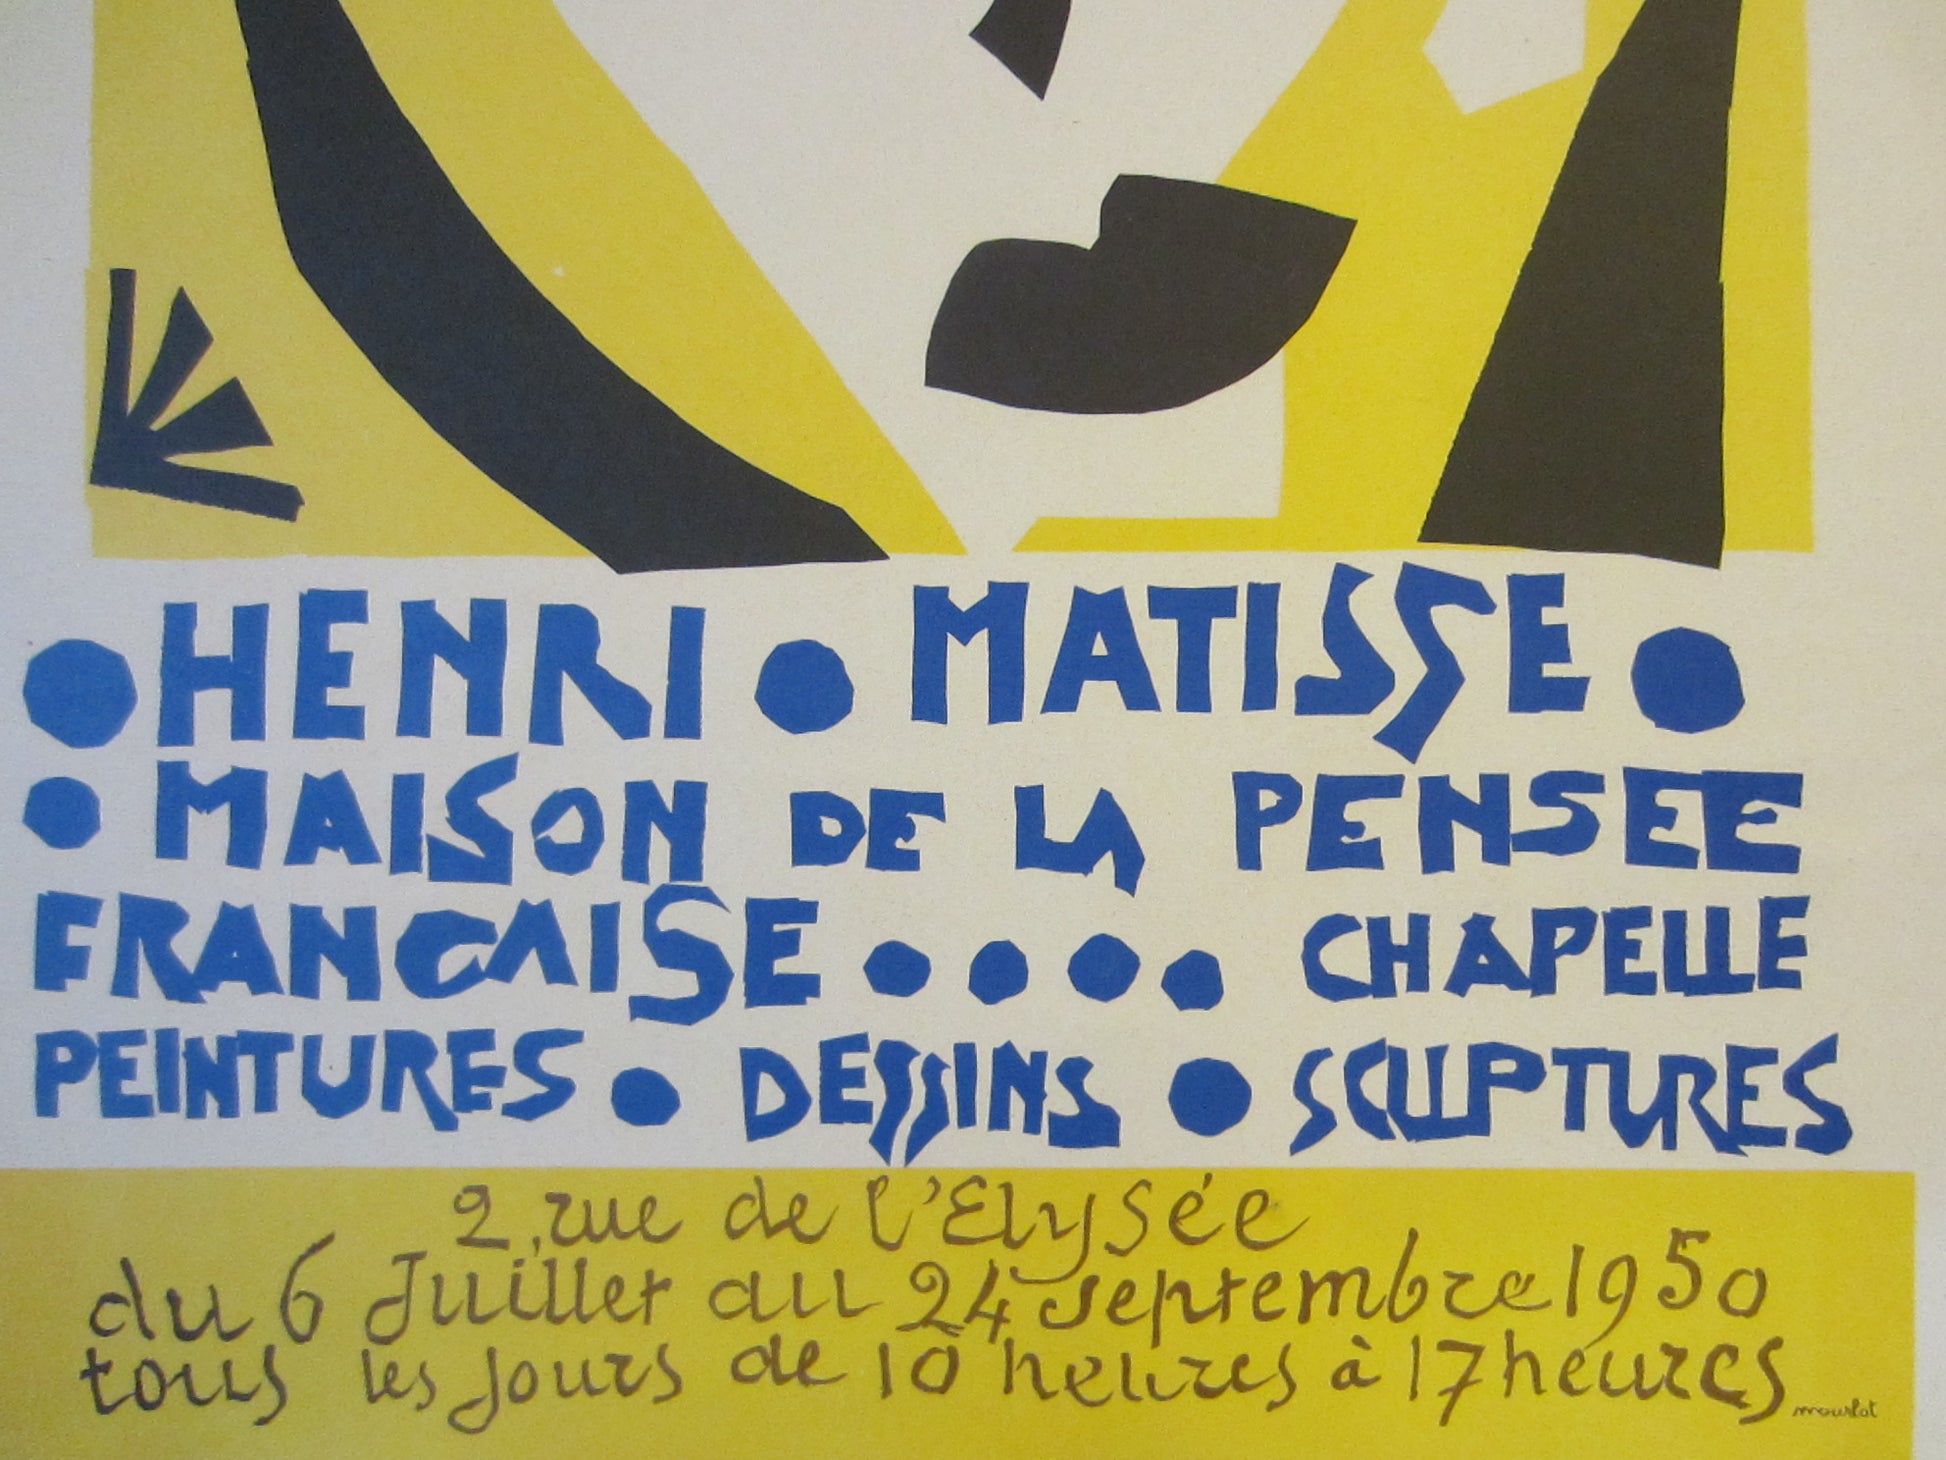 ● HENRI ● MATISSE ●
● MAISON DE LA PENSEE
FRANCAISE ● ● ● ● CHAPELLE
PEINTURES ● DESSINS ● SCULPTURES
2, rue de l'Elysée
du 6 Juillet au 24 septembre 1950
tous les jours de 10 heures à 17 heures
mourlot